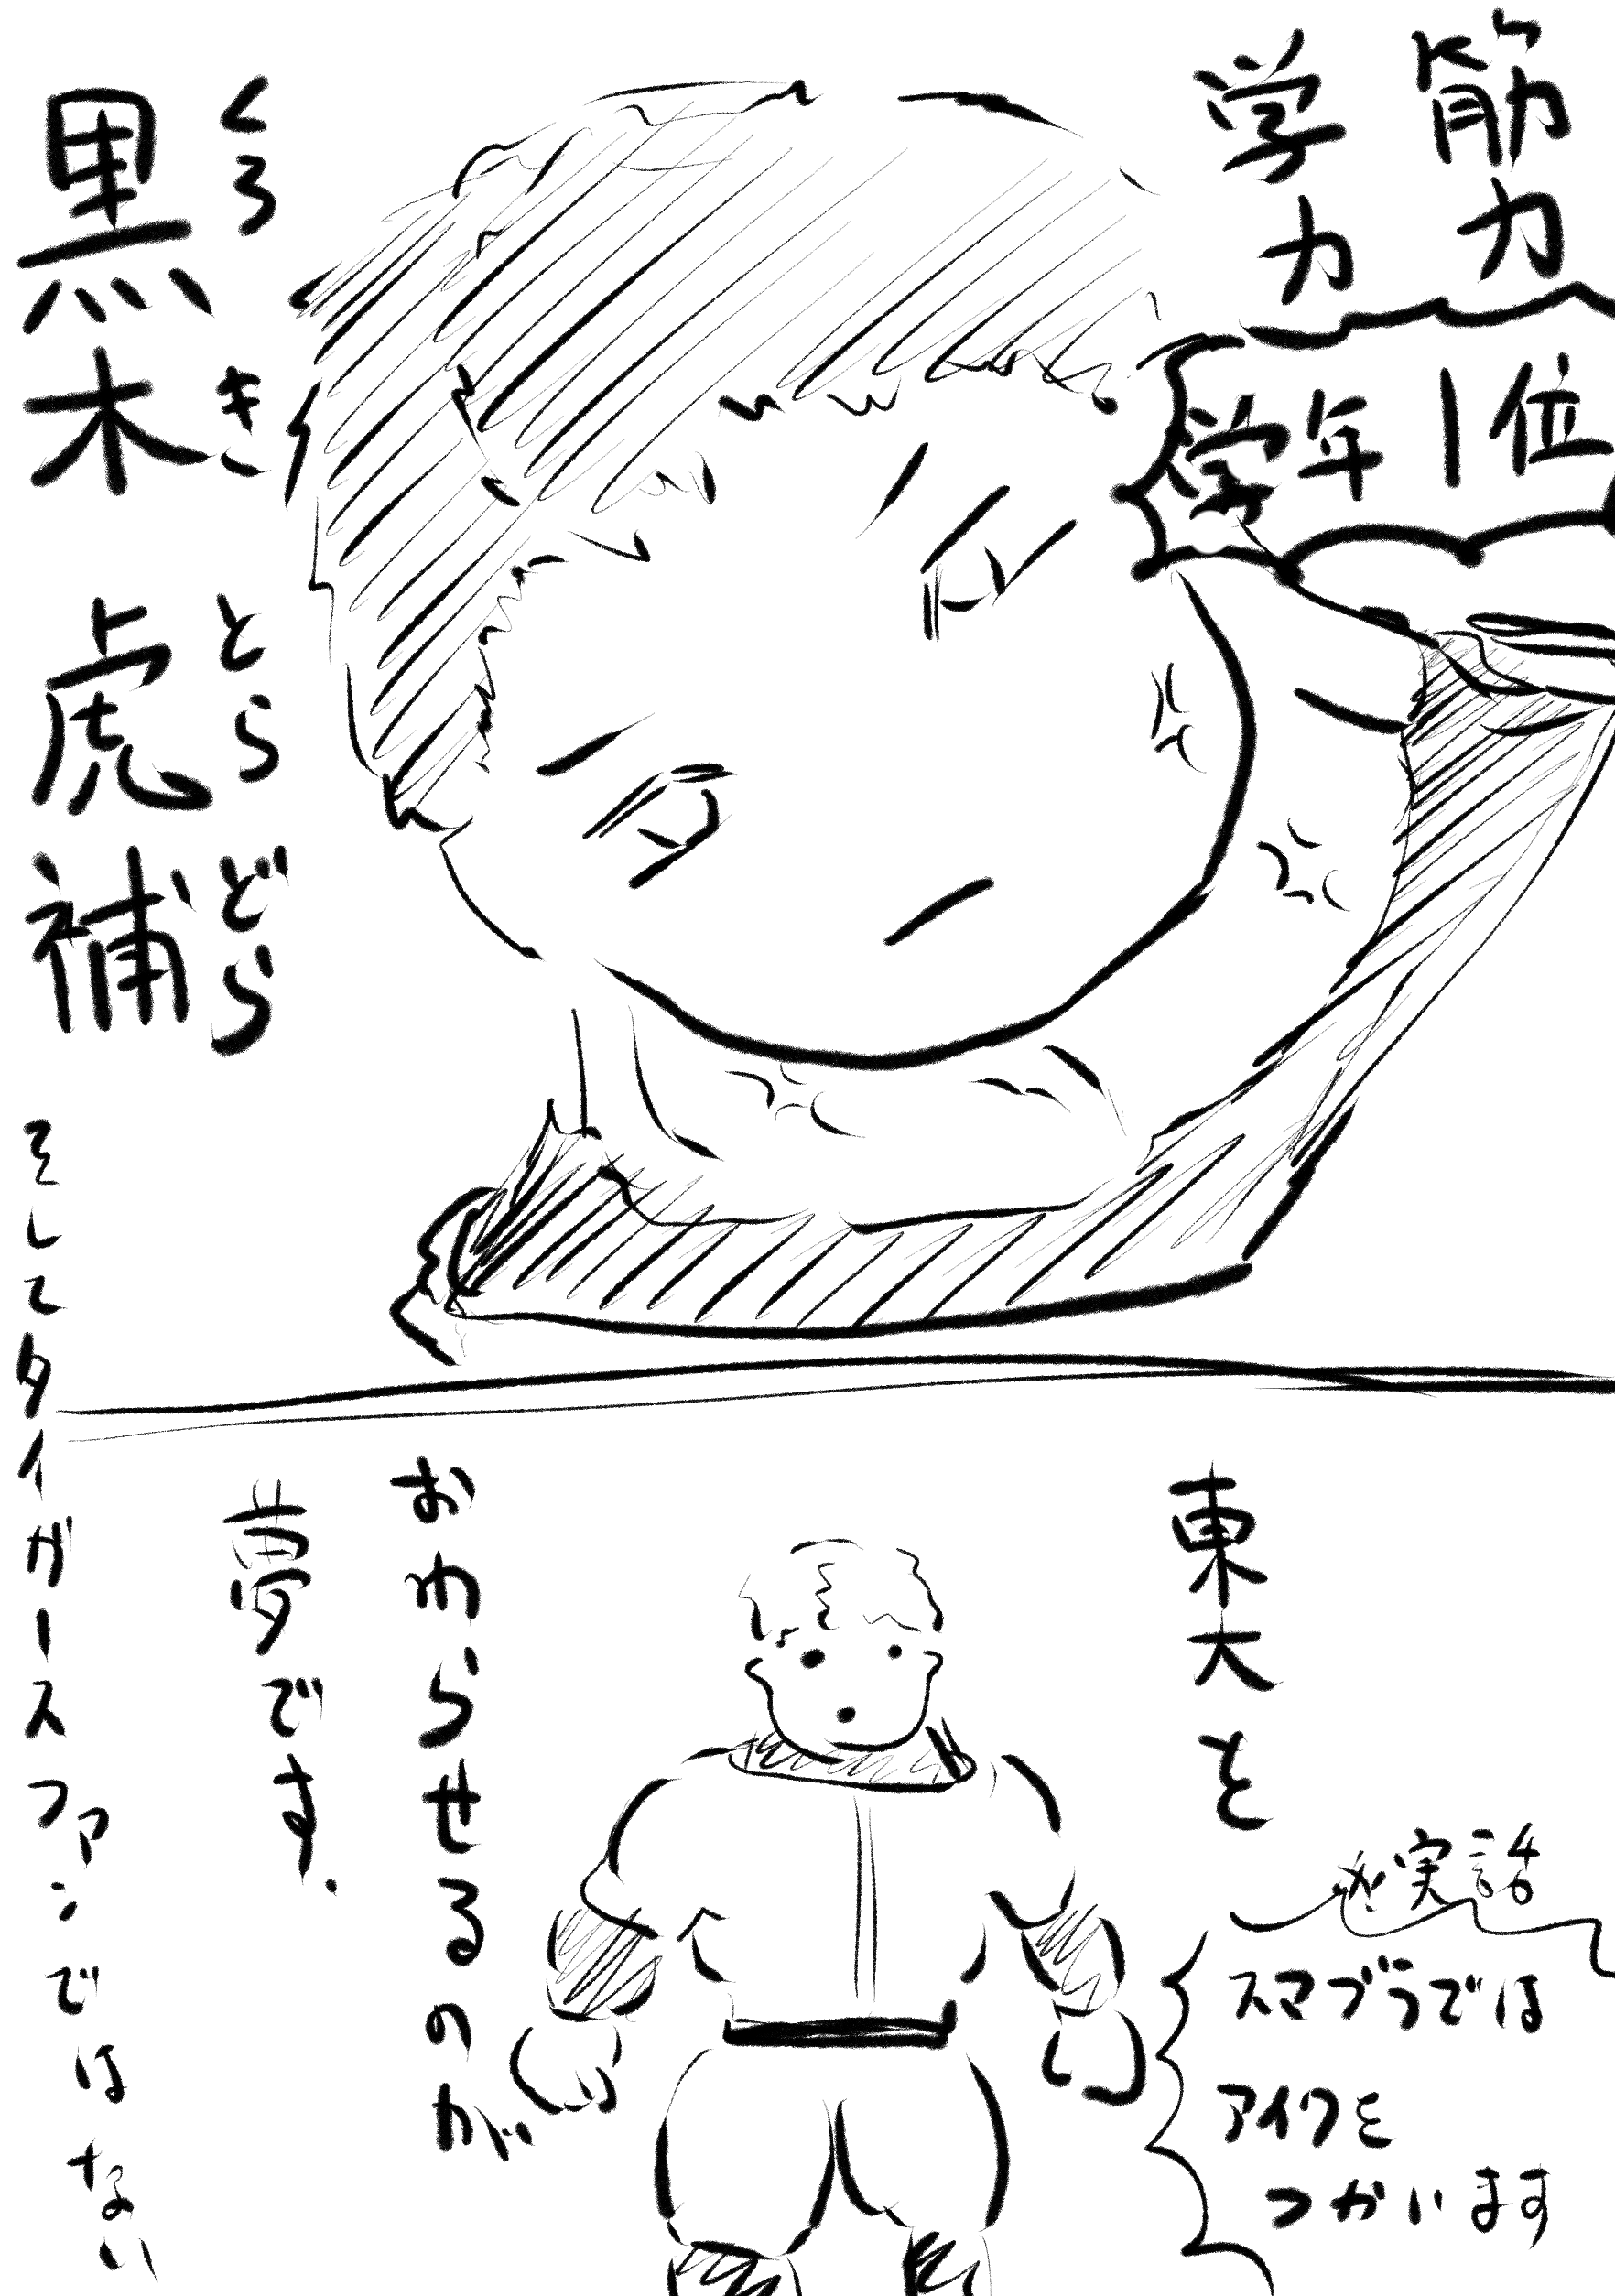 筋力
学力
学年1位
くろき とらどら
黒木 虎補
そしてタイガースファンではない
東大を
※実話
スマブラでは
アイクを
つかいます
おわらせるのが
夢です.